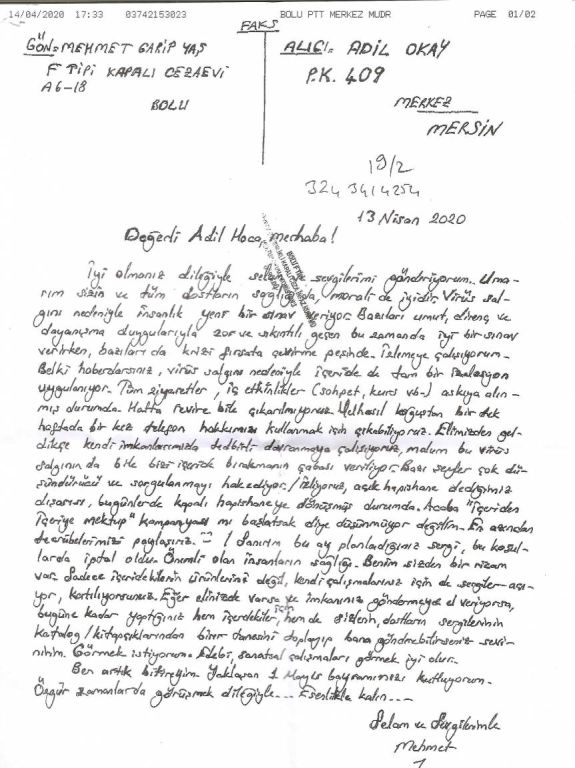 14/04/2020 17:33 03742153023 BOLU PTT MERKEZ MUDR PAGE 01/02
FAKS
GÖN= MEHMET GARİP YAŞ
F TİPİ KAPALI CEZAEVİ
A6-18
BOLU
ALICI= ADİL OKAY
P.K. 409
MERKEZ
MERSİN
19/2
324 3414254
13 Nisan 2020
Değerli Adil Hoca, merhaba!
İyi olmanız dileğiyle selam ve sevgilerimi gönderiyorum. Uma-
rım sizin ve tüm dostların sağlığı da, morali de iyidir. Virüs sal-
gını nedeniyle insanlık yeni bir sınav veriyor. Bazıları umut, direnç ve
dayanışma duygularıyla zor ve sıkıntılı geçen bu zamanda iyi bir sınav
verirken, bazıları da krizi fırsata çevirme peşinde. İzlemeye çalışıyorum.
Belki haberdarsınız, virüs salgını nedeniyle içeride de tam bir izolasyon
uygulanıyor. Tüm ziyaretler, iç etkinlikler (sohpet, kurs vb-) askıya alın-
mış durumda. Hatta revire bile çıkarılmıyoruz. Velhasıl koğuştan bir tek
haftada bir kez telefon hakkımızı kullanmak için çıkabiliyoruz. Elimizden gel-
dikçe kendi imkanlarımızla tedbirli davranmaya çalışıyoruz, malum bu virüs
salgınında bile bizi içeride bırakmanın çabası veriliyor. Bazı şeyler çok dü-
şündürücü ve sorgulanmayı hak ediyor! İzliyoruz, açık hapishane dediğimiz
dışarısı, bugünlerde kapalı hapishaneye dönüşmüş durumda. Acaba "içeriden
içeriye mektup" kampanyası mı başlatsak diye düşünmüyor değilim. En azından
tecrübelerimizi paylaşırız. ! Sanırım bu ay planladığınız sergi, bu koşul-
larda iptal oldu. Önemli olan insanların sağlığı. Benim sizden bir ricam
var. Sadece içeridekilerin ürünlerini değil, kendi çalışmalarınız için de sergiler açı-
yor, katılıyorsunuz. Eğer elinizde varsa ve imkanınız göndermeye el veriyorsa,
bugüne kadar yaptığınız hem içerdekiler için, hem de sizlerin, dostların sergilerinin
katalog/kitapçıklarından birer tanesini toplayıp bana gönderebilirseniz sevi-
nirim. Görmek istiyorum. Edebi, sanatsal çalışmaları görmek iyi olur.
Ben artık bitireyim. Yaklaşan 1 Mayıs bayramınızı kutluyorum.
Özgür zamanlarda görüşmek dileğiyle... Esenlikle kalın...
Selam ve Sevgilerimle
Mehmet